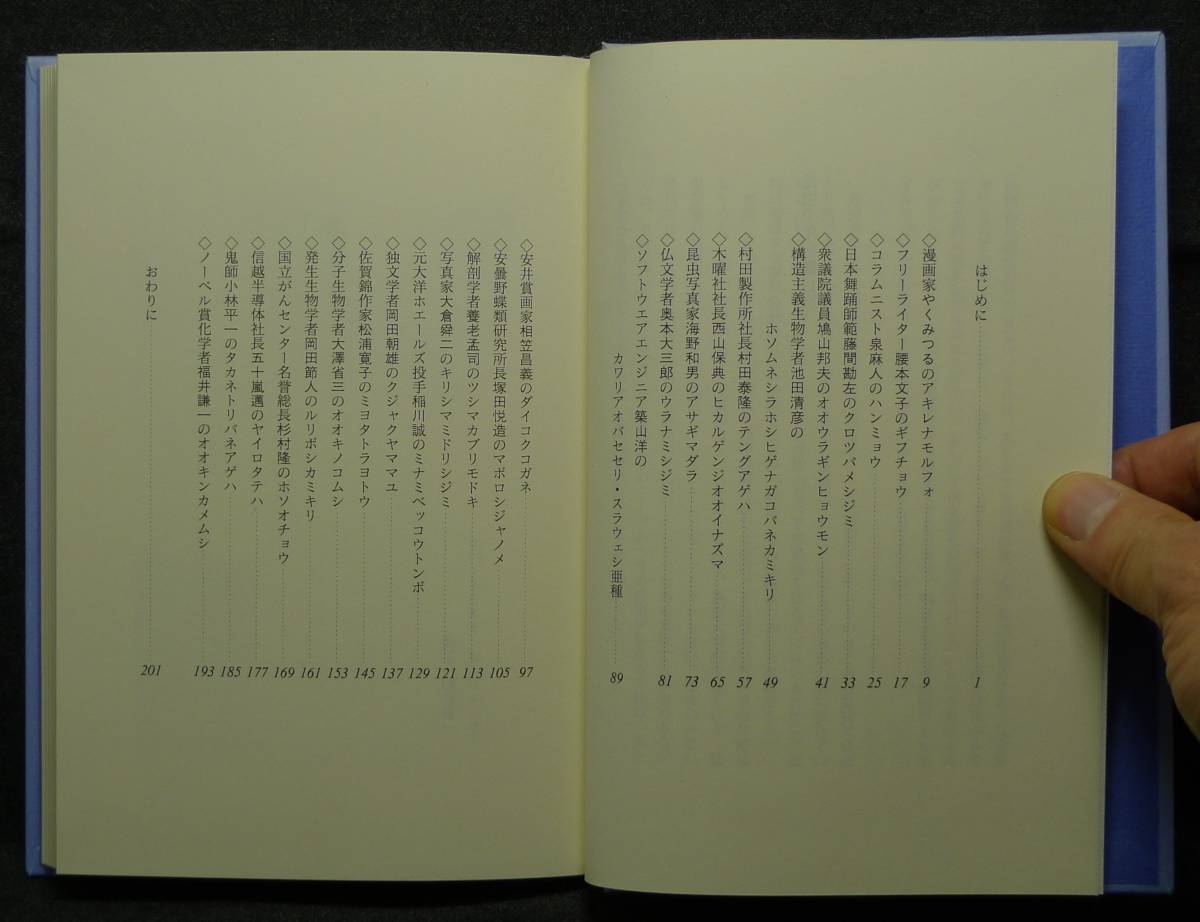 はじめに 1
◇漫画家やくみつるのアキレナモルフォ 9
◇フリーライター腰本文子のギフチョウ 17
◇コラムニスト泉麻人のハンミョウ 25
◇日本舞踊師範藤間勘左のクロツバメシジミ 33
◇衆議院議員鳩山邦夫のオオウラギンヒョウモン 41
◇構造主義生物学者池田清彦の
ホソムネシラホシヒゲナガコバネカミキリ 49
◇村田製作所社長村田泰隆のテングアゲハ 57
◇木曜社社長西山保典のヒカルゲンジオオイナズマ 65
◇昆虫写真家海野和男のアサギマダラ 73
◇仏文学者奥本大三郎のウラナミシジミ 81
◇ソフトウエアエンジニア築山洋の
カワリアオバセセリ・スラウェシ亜種 89
◇安井賞画家相笠昌義のダイコクコガネ 97
◇安曇野蝶類研究所長塚田悦造のマボロシジャノメ 105
◇解剖学者養老孟司のツシマカブリモドキ 113
◇写真家大倉舜二のキリシマミドリシジミ 121
◇元大洋ホエールズ投手稲川誠のミナミベッコウトンボ 129
◇独文学者岡田朝雄のクジャクヤママユ 137
◇佐賀錦作家松浦寛子のミヨタトラヨトウ 145
◇分子生物学者大澤省三のオオキノコムシ 153
◇発生生物学者岡田節人のルリボシカミキリ 161
◇国立がんセンター名誉総長杉村隆のホソオチョウ 169
◇信越半導体社長五十嵐邁のヤイロタテハ 177
◇鬼師小林平一のタカネトリバネアゲハ 185
◇ノーベル賞化学者福井謙一のオオキンカメムシ 193
おわりに 201